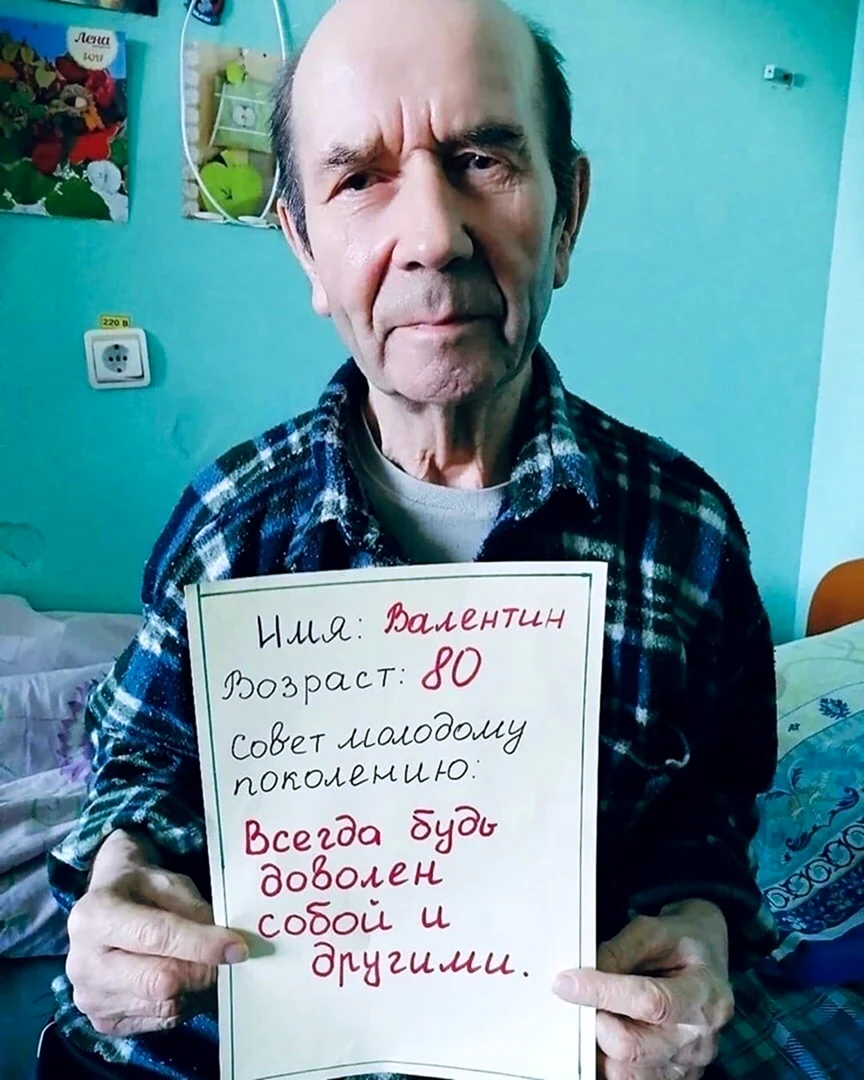 Лена
220 В
Имя: Валентин
Возраст: 80
Совет молодому
поколению:
Всегда будь
доволен
собой и
другими.